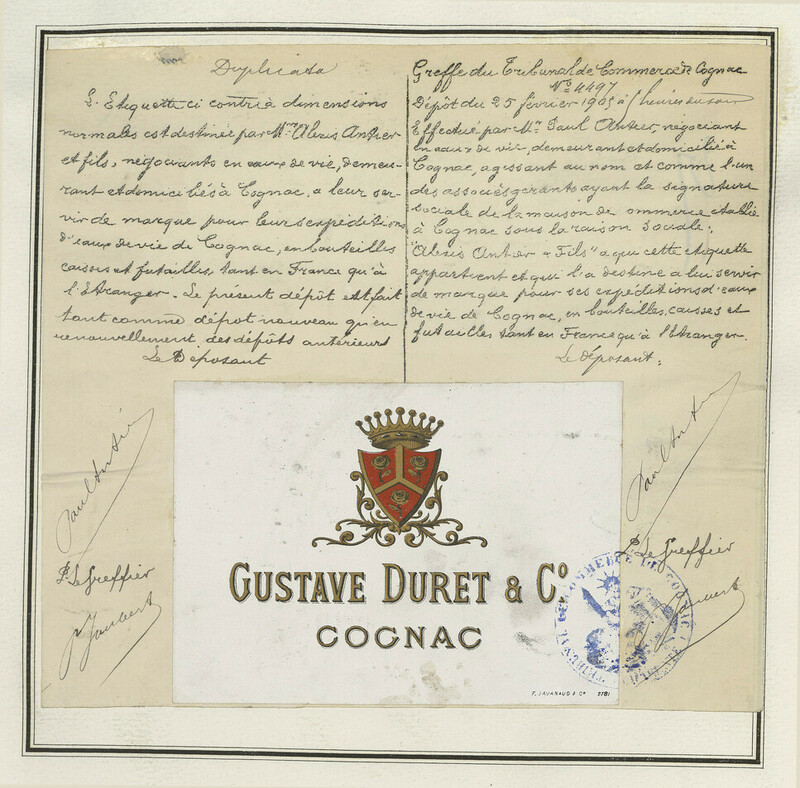 Duplicata
L'Etiquette ci contre à dimensions
normales est destinée par Mrs Alexis Antier
et fils, négociants en eaux de vie, demeu-
rant et domiciliés à Cognac, a leur ser-
vir de marque pour leurs expéditions
d'eaux de vie de Cognac, en bouteilles
caisses et futailles, tant en France qu'à
l'Etranger. Le présent dépôt est fait
tant comme dépôt nouveau qu'en
renouvellement des dépôts antérieurs
Le Déposant
Paul Antier
P. Le Greffier
P. Joubert
Greffe du Tribunal de Commerce de Cognac
No 4497
Dépôt du 25 février 1905 à heures du soir
Effectué par Mr Paul Antier, négociant
en eaux de vie, demeurant et domicilié à
Cognac, agissant au nom et comme l'un
des associés gérants ayant la signature
sociale de la maison de ommerce établie
à Cognac sous la raison sociale:
"Alexis Antier & Fils" a qui cette etiquette
appartient et qui l'a destine a lui servir
de marque pour ses expéditions d'eaux
de vie de Cognac, en bouteilles, caisses et
futailles tant en France qu'à l'Etranger.
Le déposant:
Paul Antier
P. Le Greffier
P. Joubert
GUSTAVE DURET & Co
COGNAC
TRIBUNAL DE COMMERCE DE COGNAC
F. JAVANAUD & Co 2781